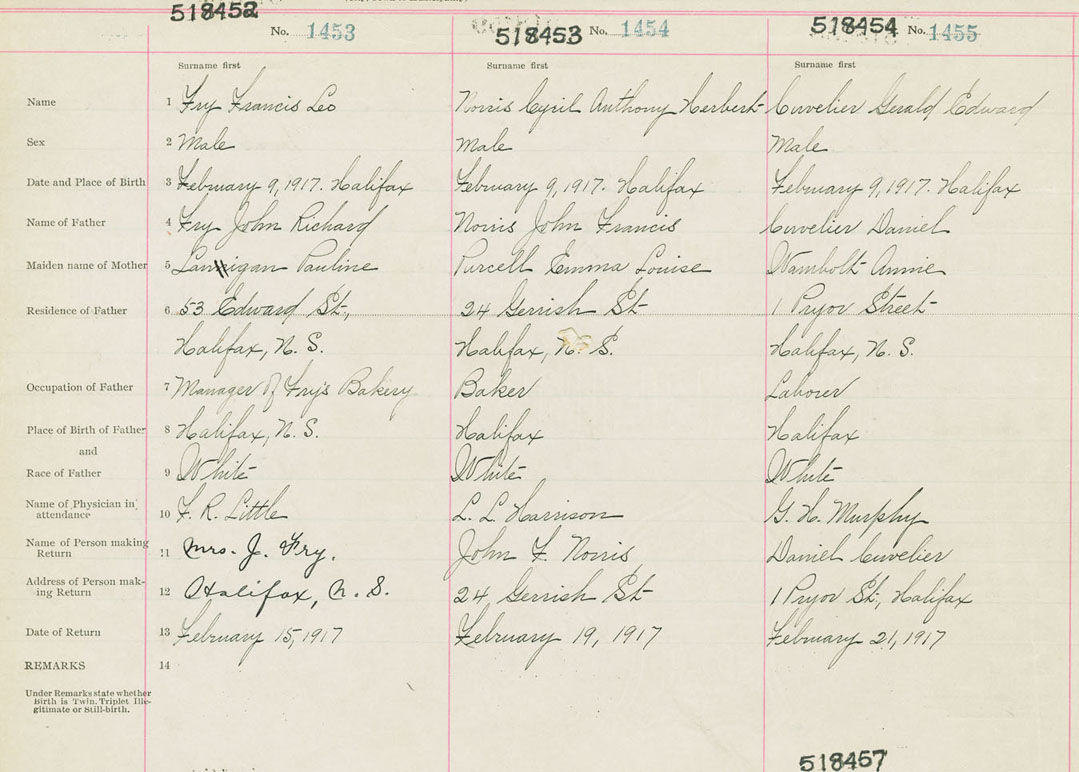 518452 518453 518454
No. 1453 No. 1454 No. 1455
Surname first Surname first Surname first
Name 1 Fry Francis Leo Norris Cyril Anthony Herbert Cuvelier Gerald Edward
Sex 2 Male Male Male
Date and Place of Birth 3 February 9, 1917. Halifax February 9, 1917. Halifax February 9, 1917. Halifax
Name of Father 4 Fry John Richard Norris John Francis Cuvelier Daniel
Maiden name of Mother 5 Lannigan Pauline Purcell Emma Louise Wambolt Annie
Residence of Father 6 53 Edward St., 24 Gerrish St 1 Pryor Street
Halifax, N. S. Halifax, N. S. Halifax, N. S.
Occupation of Father 7 Manager of Fry's Bakery Baker Laborer
Place of Birth of Father 8 Halifax, N. S. Halifax Halifax
and
Race of Father 9 White White White
Name of Physician in
attendance 10 F. R. Little L. L. Harrison G. H. Murphy
Name of Person making
Return 11 Mrs. J. Fry. John F. Norris Daniel Cuvelier
Address of Person mak-
ing Return 12 Halifax, N. S. 24 Gerrish St 1 Pryor St., Halifax
Date of Return 13 February 15, 1917 February 19, 1917 February 21, 1917
REMARKS 14
Under Remarks state whether
Birth is Twin. Triplet Ille-
gitimate or Still-birth.
518457